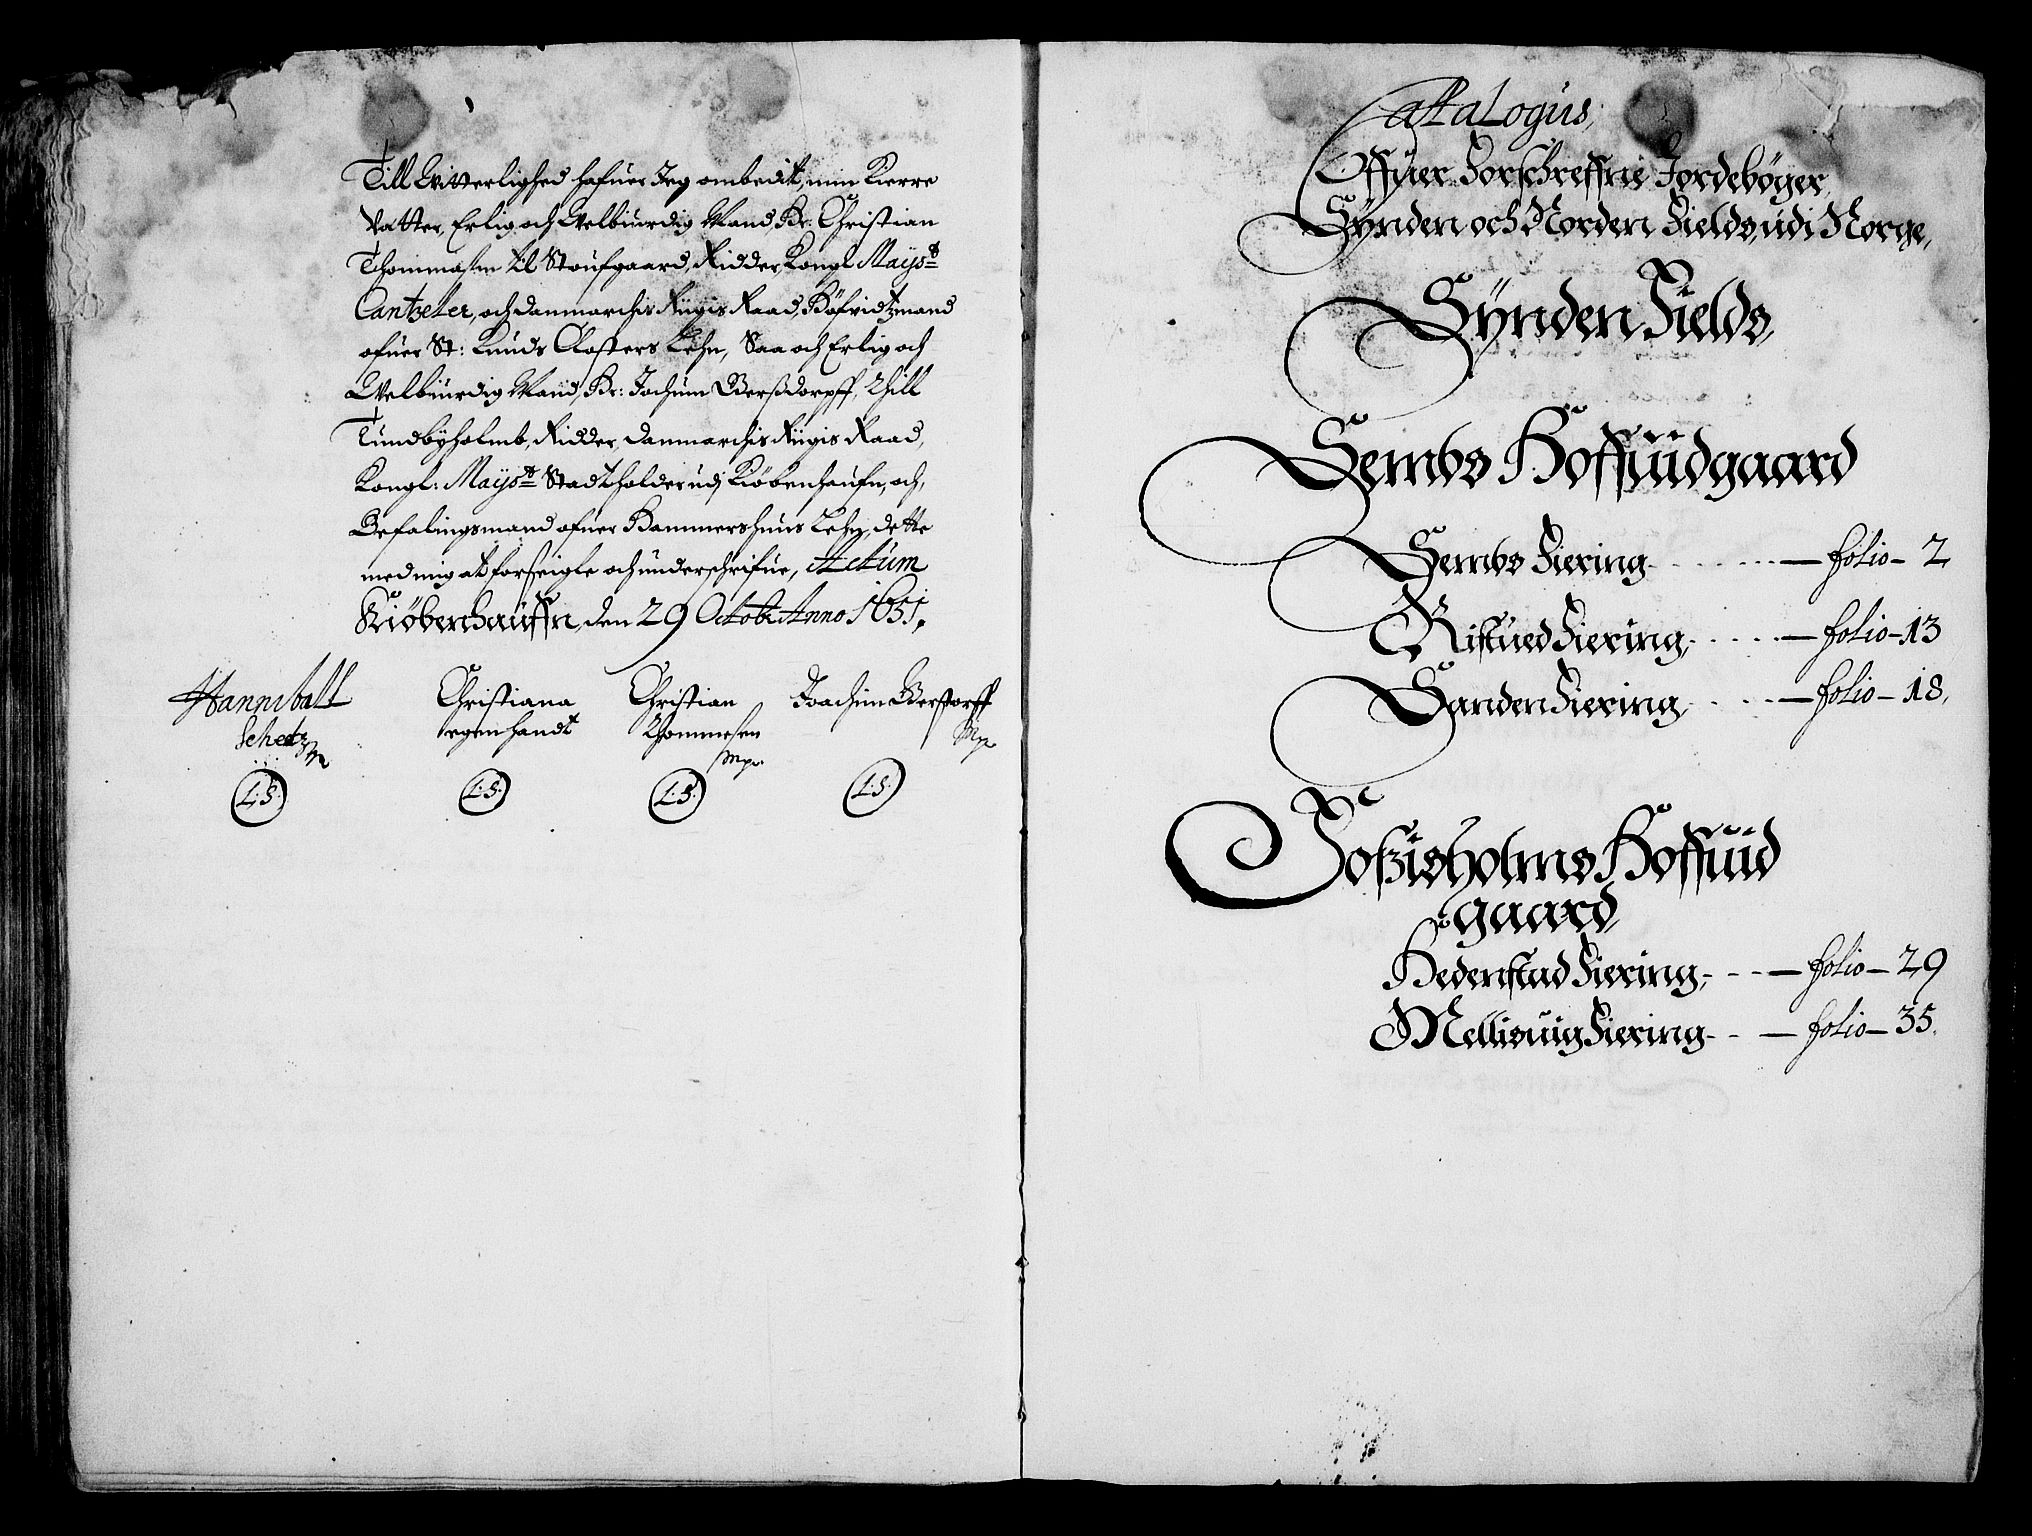 Till Witterlighed hafuer Jeg ombedit, min Kierre
Vatter, Erlig och Welbiurdig Mand, Hr. Christian
Thommasen til Stoufgaard, Ridder, Kongl Mayst
Cantzeler, och danmarchis Riigis Raad, Höfvidtzmand
ofuer St: Knuds Closters Lehn, Saa och Erlig och
Welbiurdig Mand, Hr: Jochum Gerßdorpff, Thill
Tundbyholmb, Ridder, danmarchis Riigis Raad,
Kongl: Mayst Stadtholder udj Kiöbenhaufn, och,
Befalingsmand ofuer Hammershuus Lehn, dette
med mig at forseigle och underschrifue, Actum
Kiöbenhauffn, den 29 Octob: Anno 1651,
Hanniball Christiana Christian Joachim Gerstorff
Sehested egen handt Thommesen Mp
Mpr.
L.S. L.S. L.S. L.S.
Cattalogus,
Offuer Forschreffne Jordebøger,
Synden och Norden Fields, udi Norge,
Synden Fields,
Sembs Hoffuidgaard
Sembs Fiering - folio - 2
Ristued Fiering, - folio - 13
Sanden Fiering, - folio - 18,
Foßisholms Hoffuid
gaard,
Hedenstad Fiering, - folio - 29
Mellisuig Fiering - folio - 35.